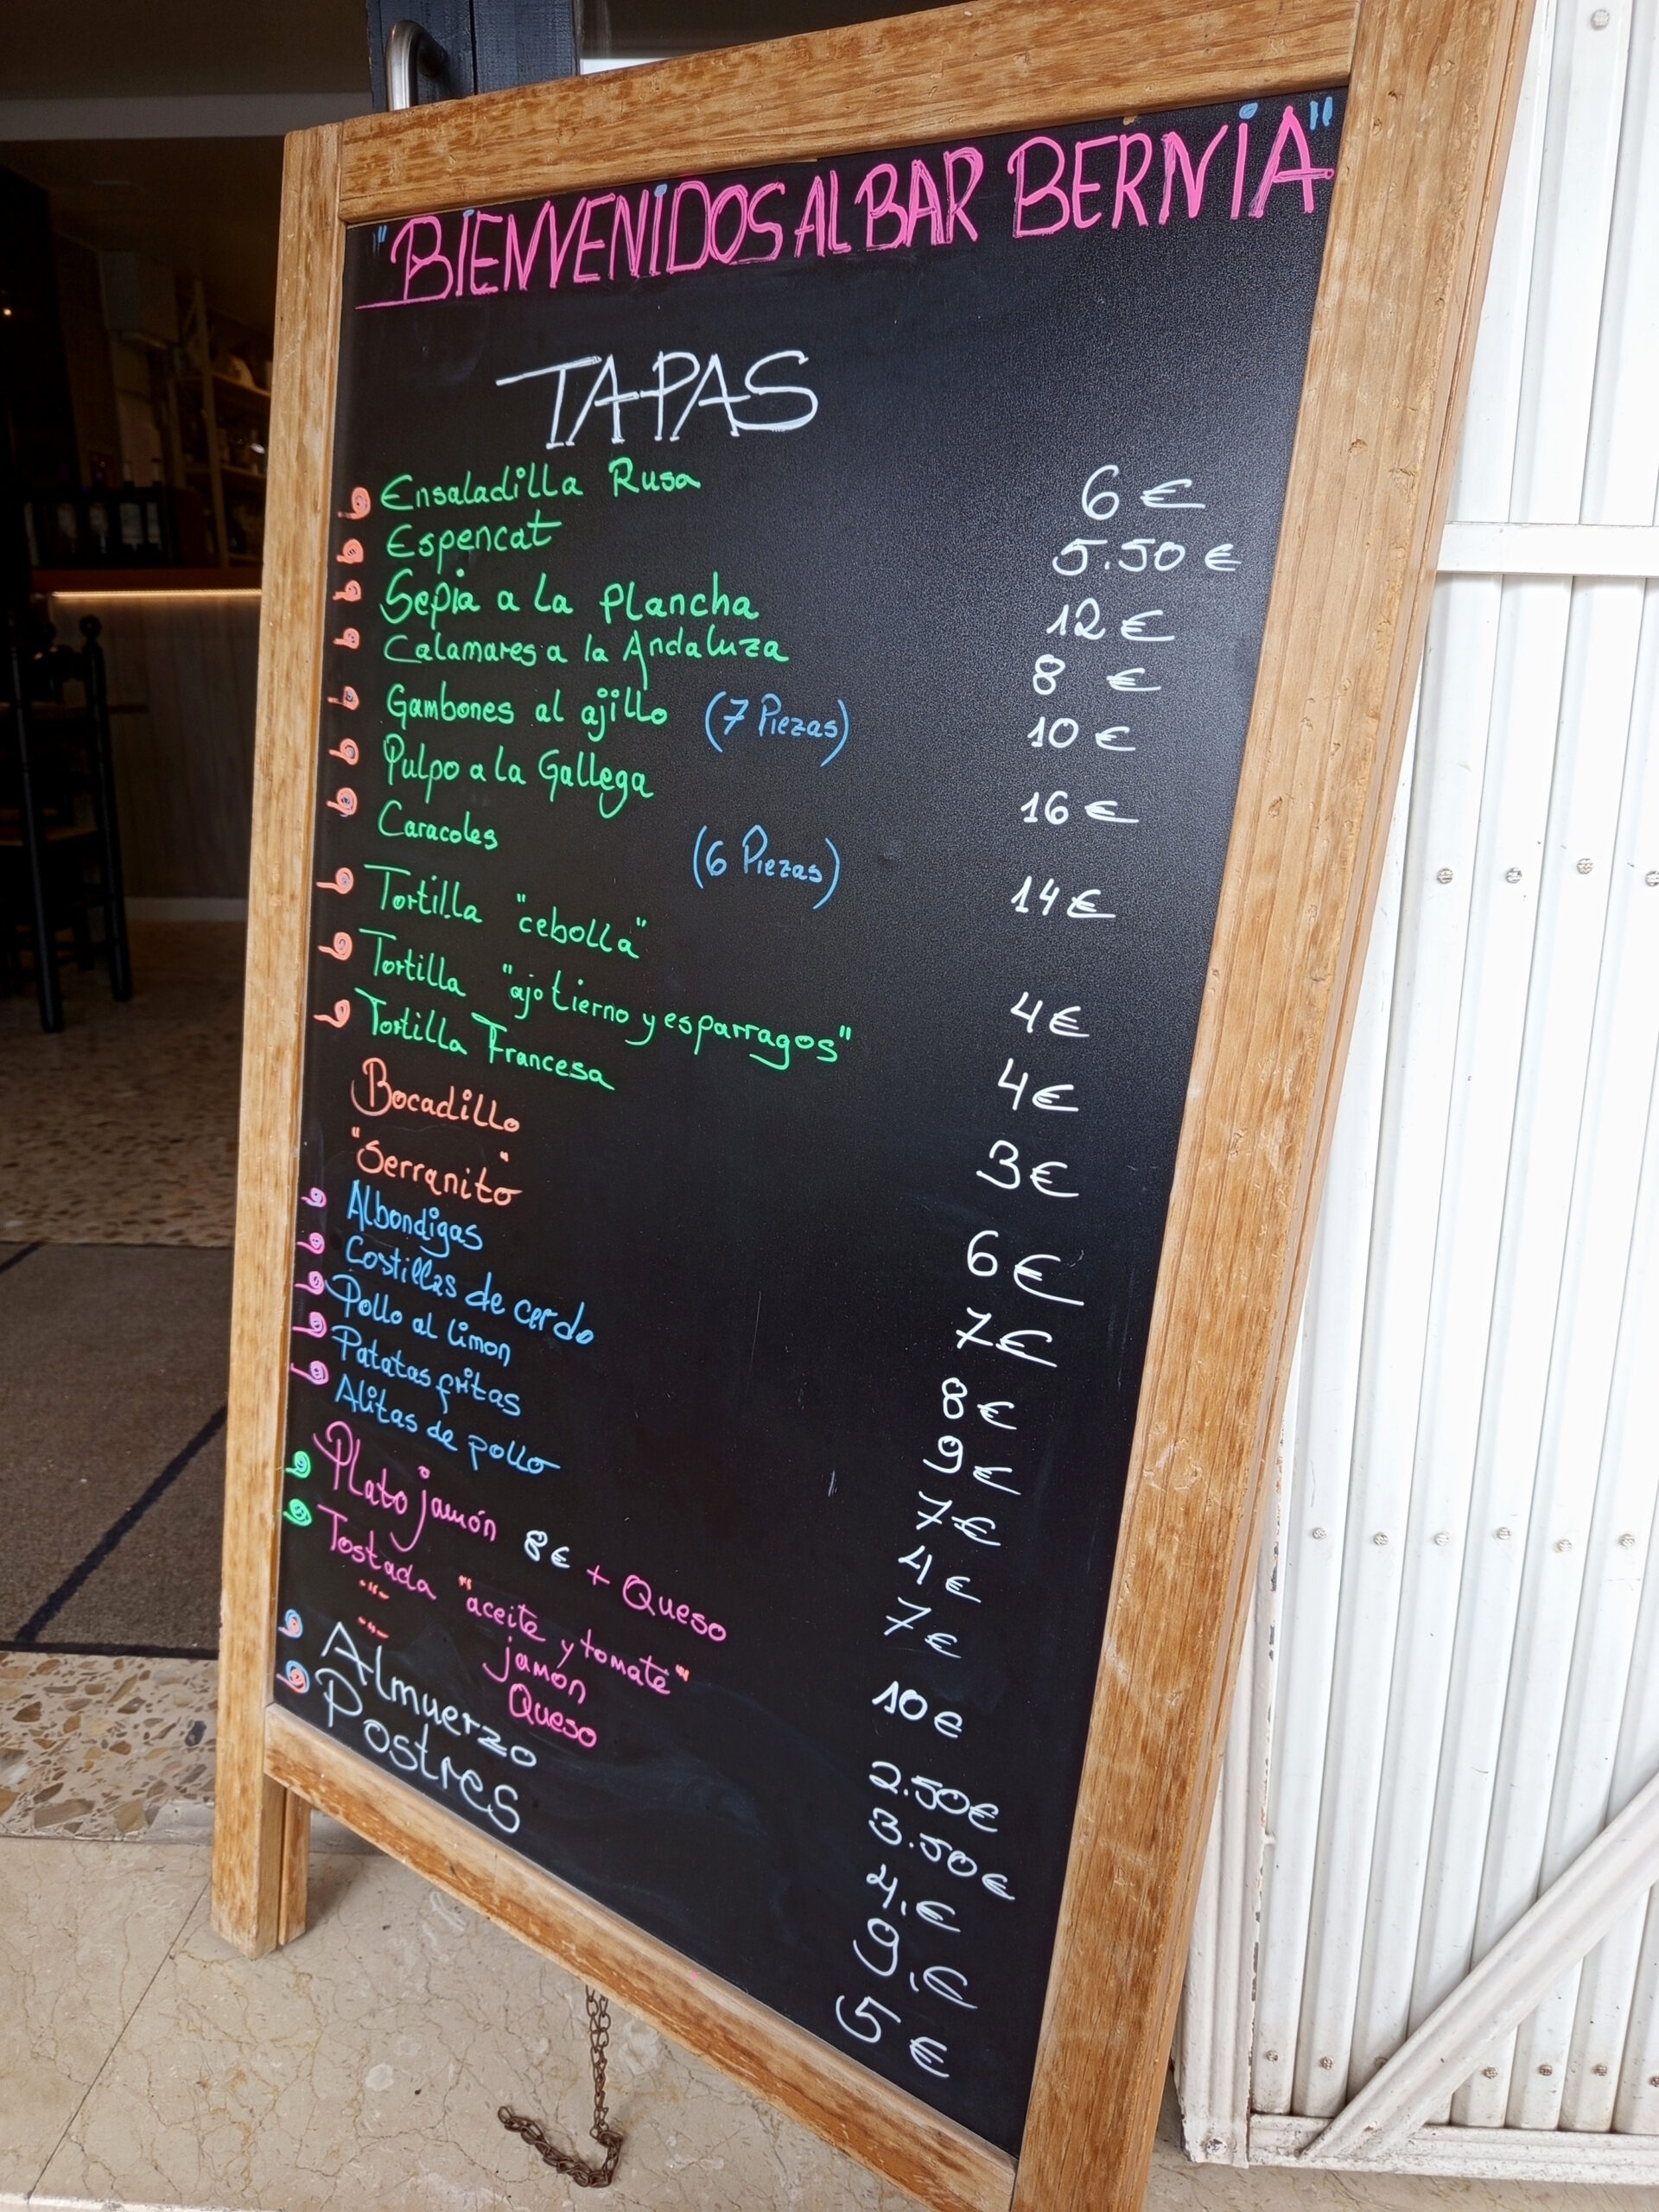 "BIENVENIDOS AL BAR BERNIA"
TAPAS
Ensaladilla Rusa 6 €
Espencat 5.50 €
Sepia a la plancha 12 €
Calamares a la Andaluza 8 €
Gambones al ajillo (7 Piezas) 10 €
Pulpo a la Gallega 16 €
Caracoles (6 Piezas) 14 €
Tortilla "cebolla" 4 €
Tortilla "ajo tierno y esparragos" 4 €
Tortilla Francesa 3 €
Bocadillo 6 €
"Serranito" 7 €
Albondigas 8 €
Costillas de cerdo 9 €
Pollo al limon 7 €
Patatas fritas 4 €
Alitas de pollo 7 €
Plato jamón 8€ + Queso 10 €
Tostada "aceite y tomate" 2.50 €
-"- jamón 3.50 €
-"- Queso 4.€
Almuerzo 9.€
Postres 5 €